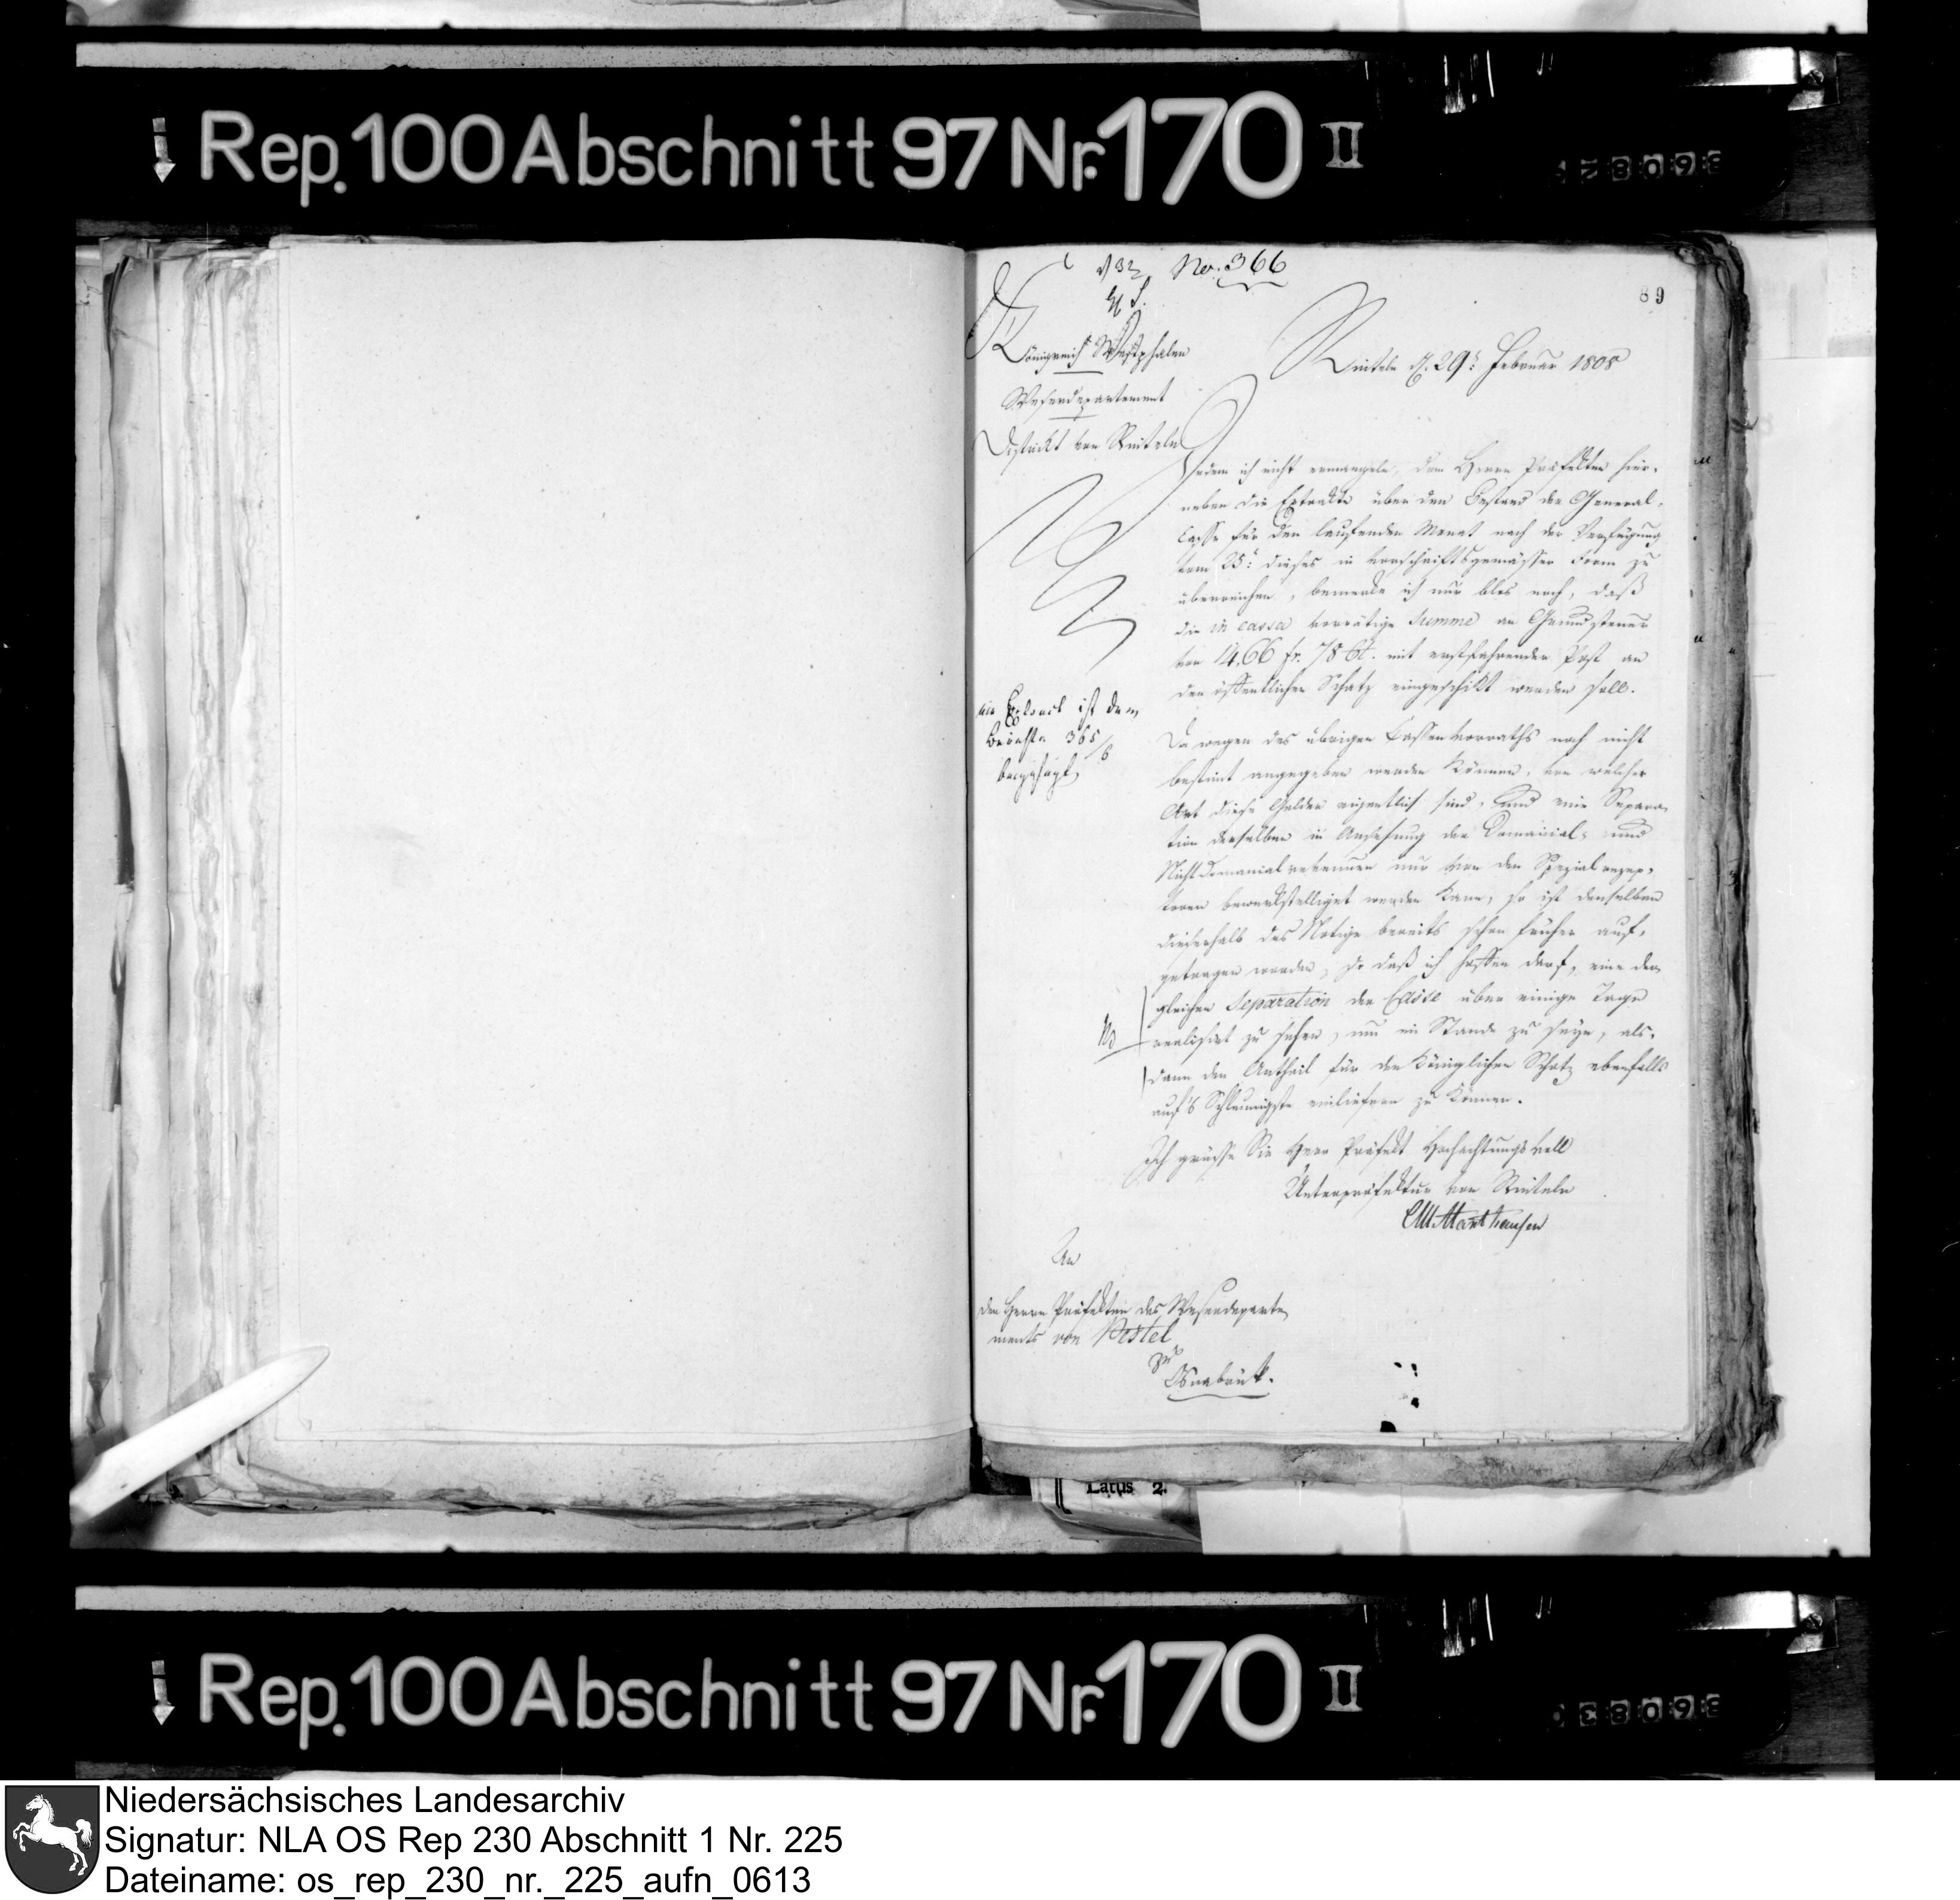 Rep. 100 Abschnitt 97 Nr. 170 II
No. 366
89
Königreich Westphalen
Weserdepartement
District von Rinteln
Rinteln d. 29t Februar 1808
Indem ich nicht ermangele, dem Herrn Präfekten hier-
neben die Extrakte über den Bestand der General-
Casse für den laufenden Monat nach der Verfügung
vom 25t dieses in vorschriftsgemässer Form zu
überreichen, bemerke ich nur blos noch, daß
die in cassa vorrätige Summe an Grundsteuer
von 1466 fr. 78 Ct. mit erstfahrender Post an
den öffentlichen Schatz eingeschikt werden soll.
ein Extract ist dem
Berichte 365/6
beigefügt
Da wegen des übrigen Cassenvorraths noch nicht
bestimt angegeben werden können, von welcher
Art diese Gelder eigentlich sind, und eine Separa-
tion derselben in Ansehung der Domanial- und
Nicht Domanial revenuen nur von den Spezialrezep-
toren bewerkstelliget werden kann, so ist denselben
dieserhalb das Nötige bereits schon früher auf-
getragen worden, so daß ich hoffen darf, eine der-
gleichen Separation der Casse über einige Tage
realisirt zu sehen, um im Stande zu seyn, als-
dann den Antheil für den Königlichen Schatz ebenfalls
auf's Schleunigste einliefern zu können.
Ich grüsse Sie Herr Präfekt Hochachtungsvoll
Unterpräfektur von Rinteln
An
den Herrn Präfekten des Weserdeparte-
ments von Pestel
zu
Osnabrük.
Latus 2.
Rep. 100 Abschnitt 97 Nr. 170 II
Niedersächsisches Landesarchiv
Signatur: NLA OS Rep 230 Abschnitt 1 Nr. 225
Dateiname: os_rep_230_nr._225_aufn_0613